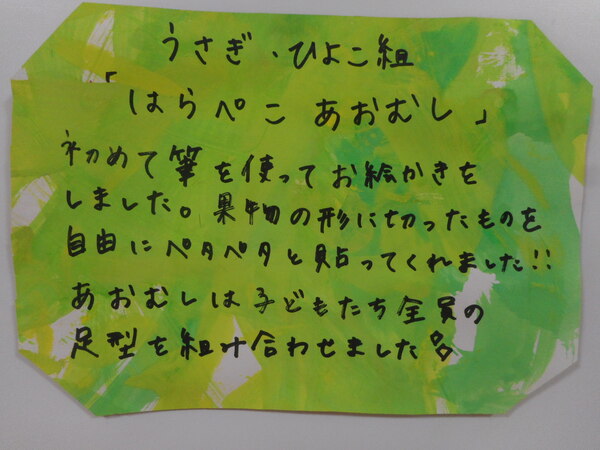 うさぎ・ひよこ組
「はらぺこ あおむし」
初めて筆を使ってお絵かきを
しました。果物の形に切ったものを
自由にペタペタと貼ってくれました!!
あおむしは子どもたち全員の
足型を組み合わせました